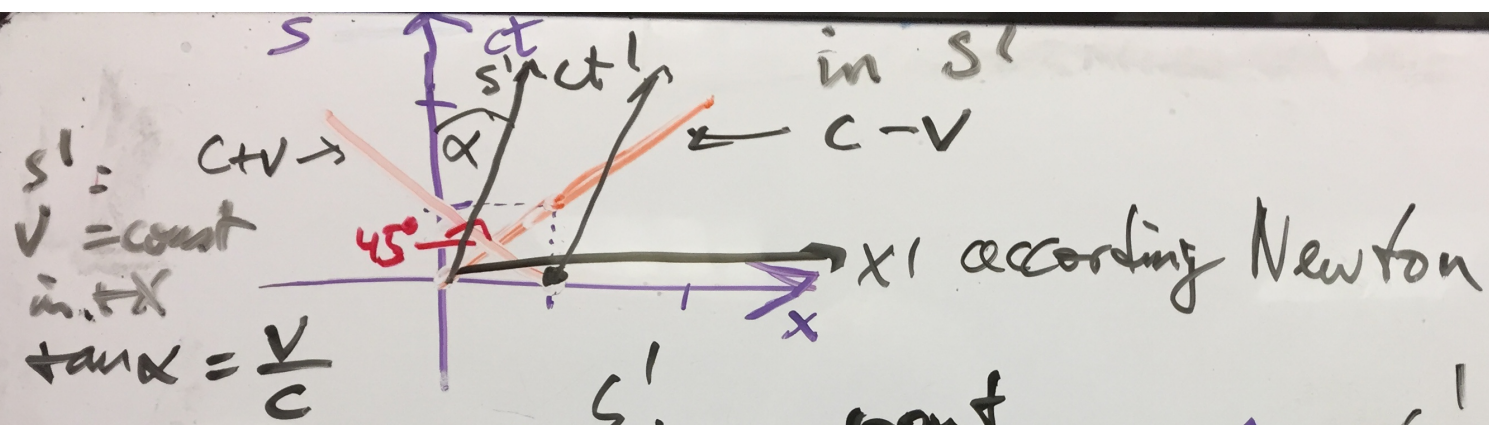 S
ct
S'
ct'
in S'
α
C+V →
← C-V
S':
V = const
in +X
45°
X' according Newton
X
tanα = V/C
S'